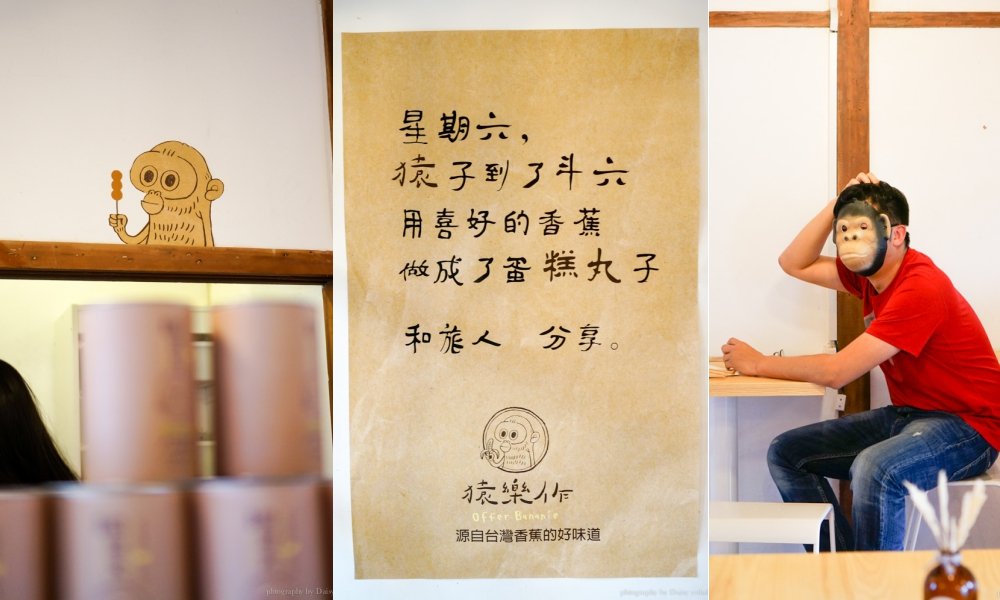 星期六，
猿子到了斗六
用喜好的香蕉
做成了蛋糕丸子
和旅人 分享。
猿樂作
Offer Bananie
源自台灣香蕉的好味道
photography by Dais
photography by Daisy